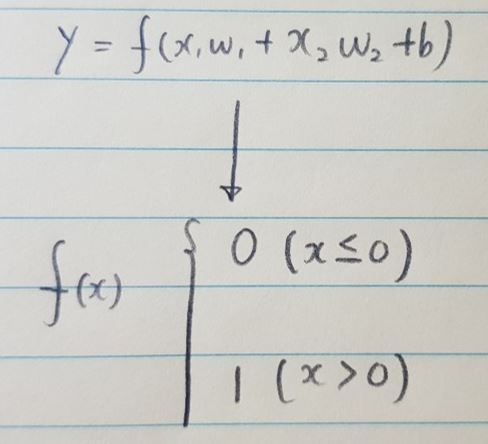 y = f(x₁w₁ + x₂w₂ + b)
↓
f(x) { 0 (x ≤ 0)
1 (x > 0)